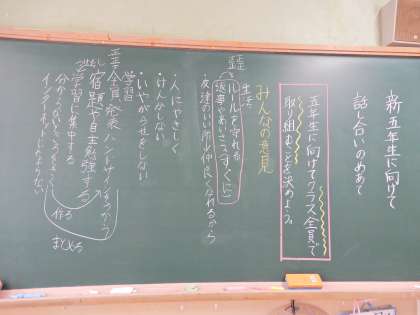 新五年生に向けて
話し合いのめあて
五年生に向けてクラス全員で
取り組むことを決めよう。
みんなの意見
生活
ルールを守れる
返事やあいさつ(すぐに)
友達のいい所 仲良くなれるから
・人にやさしく
・けんかしない
・いやがらせをしない
学習
全員発表 ハンドサインをつかう
宿題や自主勉強する
学習に集中する
インターネットにたよらない
作る
まとめる